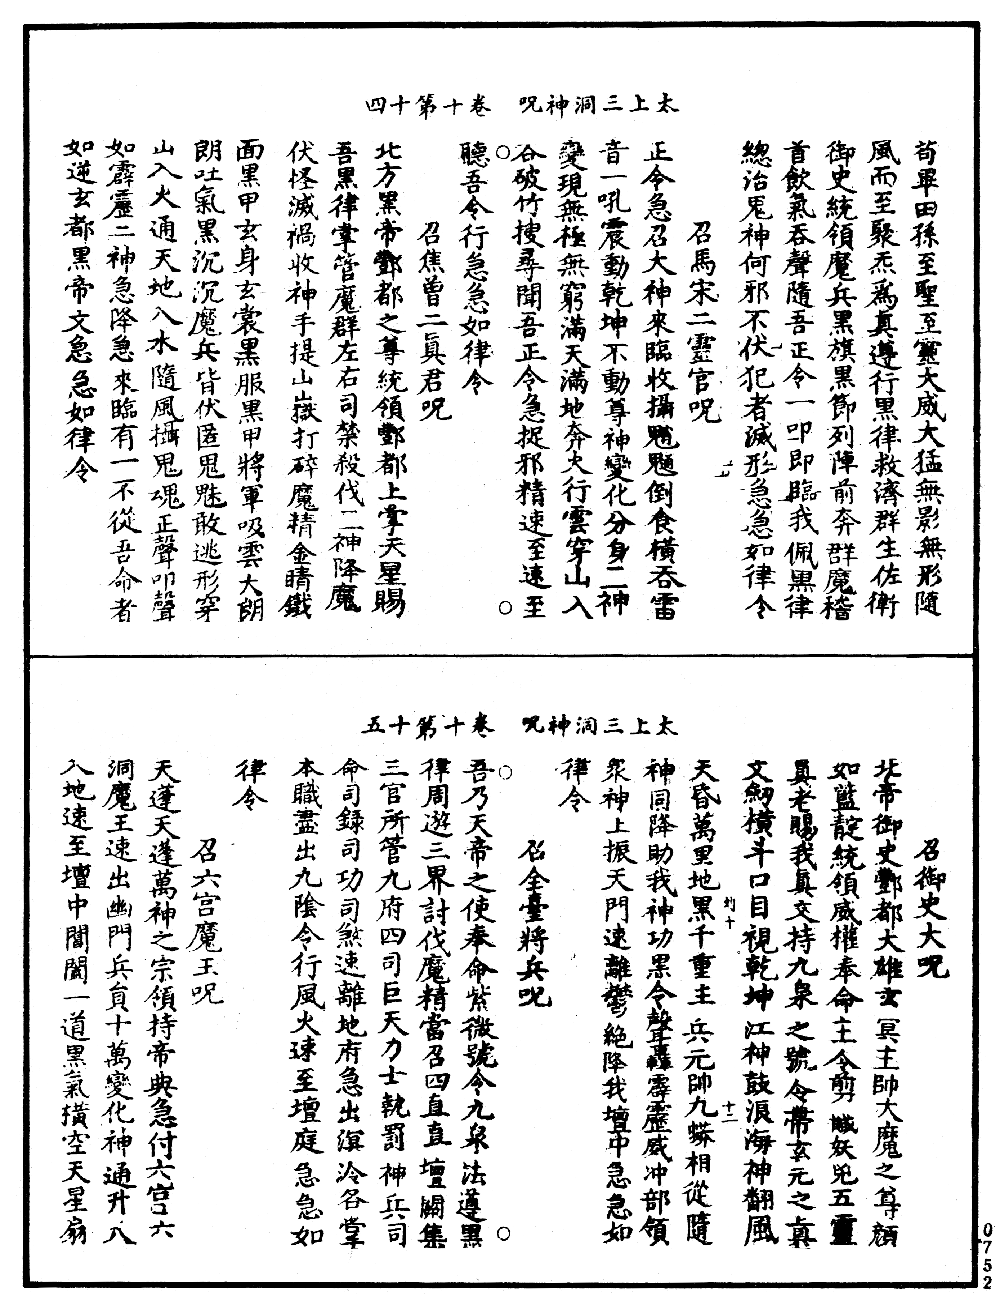 太上三洞神呪　卷十第十四
苟畢田孫至聖至靈大威大猛無影無形隨
風而至聚炁爲真遵行黑律救濟群生佐衛
御史統領魔兵黑旗黑節列陣前奔群魔稽
首飲氣吞聲隨吾正令一叩即臨我佩黑律
總治鬼神何邪不伏犯者滅形急急如律令
召馬宋二靈官呪
正令急召大神來臨收攝魑魅倒食橫吞雷
音一吼震動乾坤不動尊神變化分身二神
變現無極無窮滿天滿地奔火行雲穿山入
谷破竹搜尋聞吾正令急捉邪精速至速至
聽吾令行急急如律令
召焦曾二眞君呪
北方黑帝酆都之尊統領酆都上掌天星賜
吾黑律掌管魔群左右司禁殺伐二神降魔
伏怪滅禍收神手提山嶽打碎魔精金睛鐵
面黑甲玄身玄裳黑服黑甲將軍吸雲大朗
朗吐氣黑沉沉魔兵皆伏匿鬼魅敢逃形穿
山入火通天地入水隨風攝鬼魂正聲叩聲
如霹靂二神急降急來臨有一不從吾命者
如逆玄都黑帝文急急如律令
太上三洞神呪　卷十第十五
召御史大呪
北帝御史酆都大雄玄冥主帥大魔之尊顔
如藍靛統領威權奉命主令剪馘妖兇五靈
真老賜我眞文持九泉之號令帶玄元之眞
文劒橫斗口目視乾坤江神鼓浪海神翻風
天昏萬里地黑千重主兵元帥九蟒相從隨
神同降助我神功黑令聲轟霹靂威冲部領
衆神上振天門速離鬱絶降我壇中急急如
律令
召全臺將兵呪
吾乃天帝之使奉命紫微號令九泉法遵黑
律周遊三界討伐魔精當召四直直壇關集
三官所管九府四司巨天力士執罰神兵司
命司錄司功司煞速離地府急出溟泠各掌
本職盡出九陰令行風火速至壇庭急急如
律令
召六宮魔王呪
天蓬天蓬萬神之宗領持帝典急付六宮六
洞魔王速出幽門兵員十萬變化神通升入
入地速至壇中闔闔一道黑氣橫空天星扇
0752